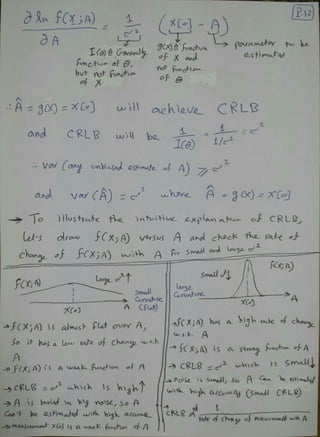 P.12
∂ ln f(X;A) / ∂A = 1/σ² (x[0] - A)
I(θ) ≜ Generally function of θ, but not function of X
g(x) ≜ function of X and not function of θ
parameter to be estimated
∴ Â = g(x) = x[0] will achieve CRLB
and CRLB will be 1/I(θ) = 1/(1/σ²) = σ²
∴ var (any unbiased estimate of A) ≥ σ²
and var(Â) = σ² where Â = g(x) = x[0]
→ To illustrate the intuitive explanation of CRLB,
let's draw f(X;A) versus A and check the rate of
change of f(X;A) with A for small and large σ²
f(X;A)
large σ² ↑
small curvature (flat)
A
x[0]
→ f(X;A) is almost flat over A,
so it has a low rate of change w.r.t.
A
→ f(X;A) is a weak function of A
→ CRLB = σ² which is high ↑
→ A is buried in big noise, so A
can't be estimated with high accuracy
→ measurement x[0] is a weak function of A
small σ² ↓
f(X;A)
large curvature
A
x[0]
→ f(X;A) has a high rate of change
w.r.t. A
→ f(X;A) is a strong function of A
→ CRLB = σ² which is small ↓
→ noise is small, so A can be estimated
with high accuracy (small CRLB)
CRLB α 1 / rate of change of measurement with A